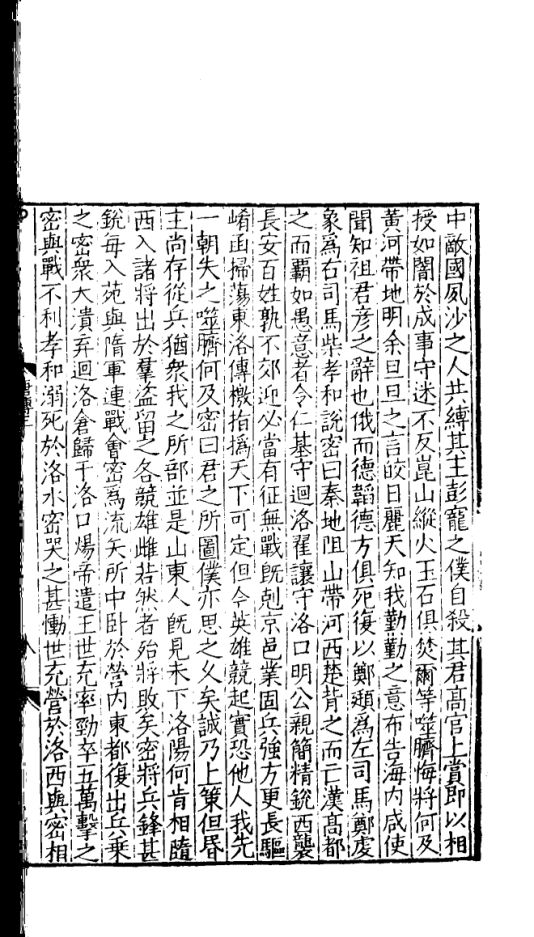 中敵國夙沙之人共縛其主彭寵之僕自殺其君高官上賞即以相
授如闇於成事守迷不反崑山縱火玉石俱焚爾等噬臍悔將何及
黃河帶地明余旦旦之言皎日麗天知我勤勤之意布告海內咸使
聞知祖君彥之辭也俄而德韜德方俱死復以鄭頲爲左司馬鄭虔
象爲右司馬柴孝和說密曰秦地阻山帶河西楚背之而亡漢高都
之而霸如愚意者令仁基守迴洛翟讓守洛口明公親簡精銳西襲
長安百姓孰不郊迎必當有征無戰旣剋京邑業固兵強方更長驅
崤函掃蕩東洛傳檄指撝天下可定但今英雄競起實恐他人我先
一朝失之噬臍何及密曰君之所圖僕亦思之乆矣誠乃上策但昏
主尚存從兵猶衆我之所部並是山東人旣見未下洛陽何肯相隨
西入諸將出於羣盜留之各競雄雌若然者殆將敗矣密將兵鋒甚
銳每入苑與隋軍連戰會密爲流矢所中卧於營内東都復出兵乗
之密衆大潰弃迴洛倉歸于洛口煬帝遣王世充率勁卒五萬擊之
密與戰不利孝和溺死於洛水密哭之甚慟世充營於洛西與密相